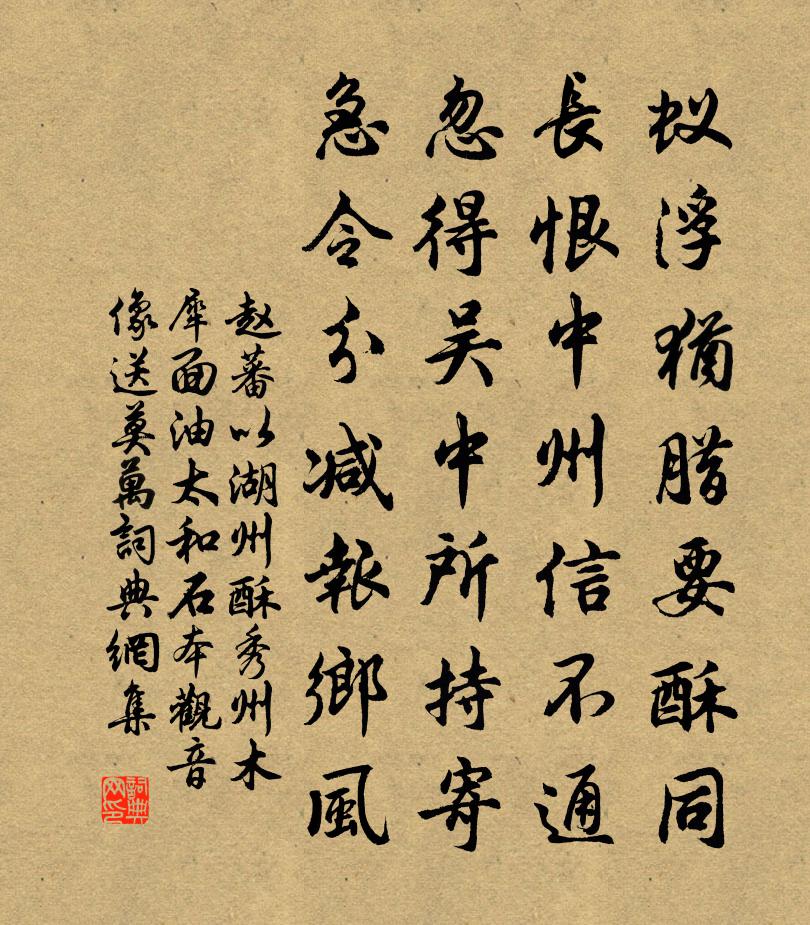 蚁浮犹腊要酥同
長恨中州信不通
忽得吴中所持寄
急令分减報鄉風
赵蕃以湖州酥秀州木
犀面油太和石本觀音
像送莫萬詞典網集
詞典网印